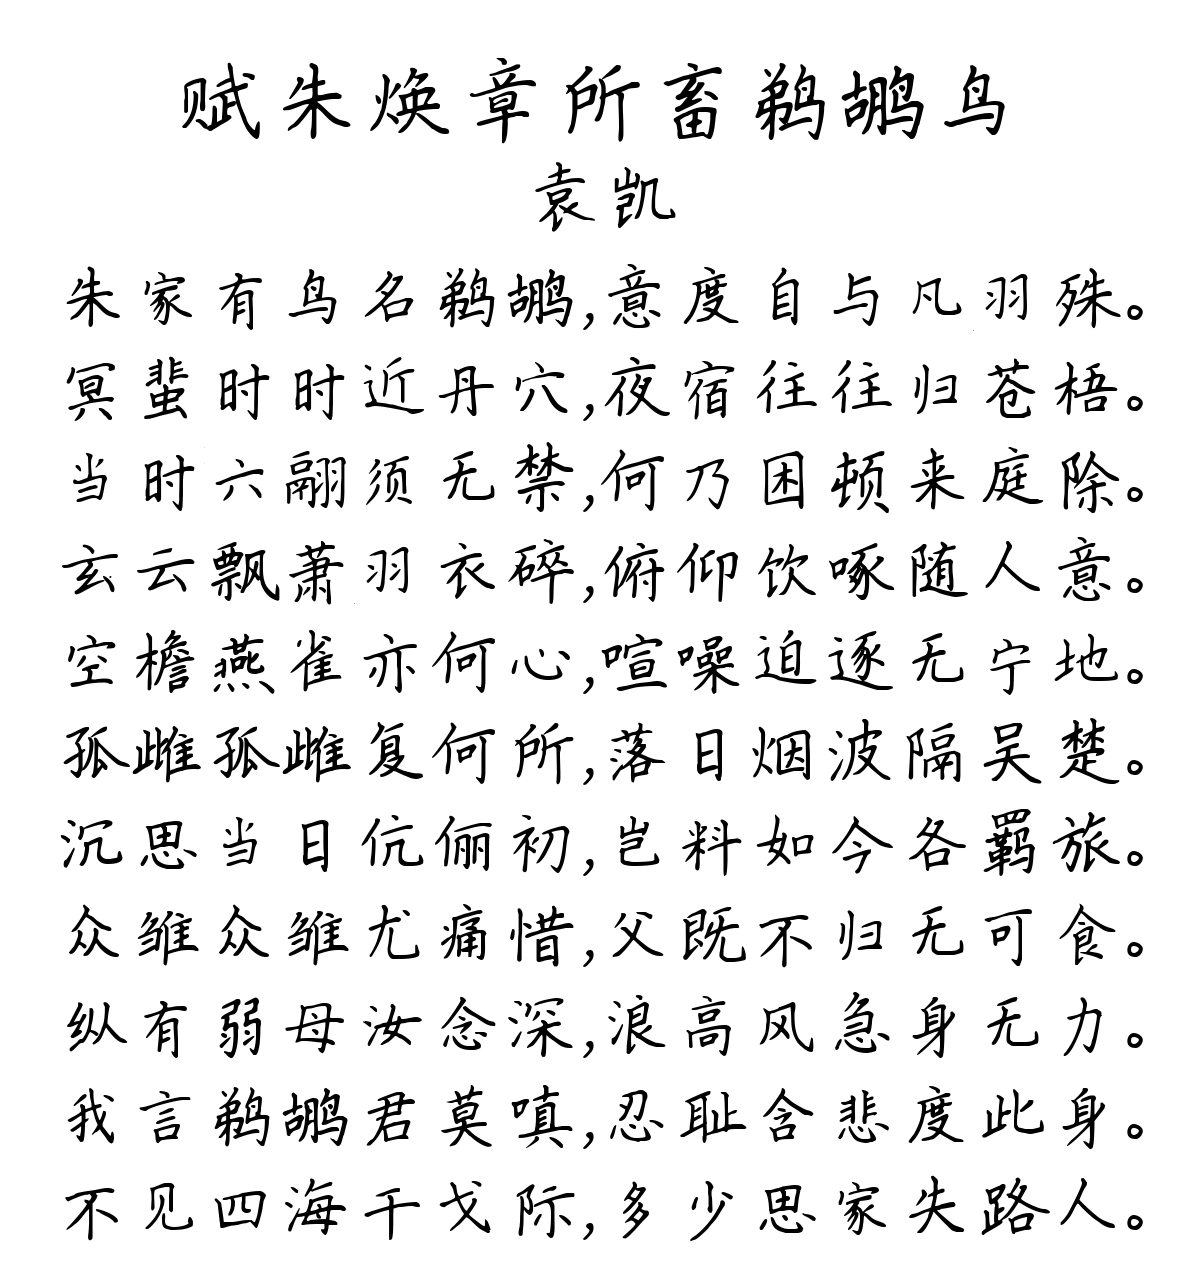 赋朱焕章所畜鹈鹕鸟
袁凯
朱家有鸟名鹈鹕,意度自与凡羽殊。
冥蜚时时近丹穴,夜宿往往归苍梧。
当时六翮须无禁,何乃困顿来庭除。
玄云飘萧羽衣碎,俯仰饮啄随人意。
空檐燕雀亦何心,喧噪迫逐无宁地。
孤雌孤雌复何所,落日烟波隔吴楚。
沉思当日伉俪初,岂料如今各羁旅。
众雏众雏尤痛惜,父既不归无可食。
纵有弱母汝念深,浪高风急身无力。
我言鹈鹕君莫嗔,忍耻含悲度此身。
不见四海干戈际,多少思家失路人。